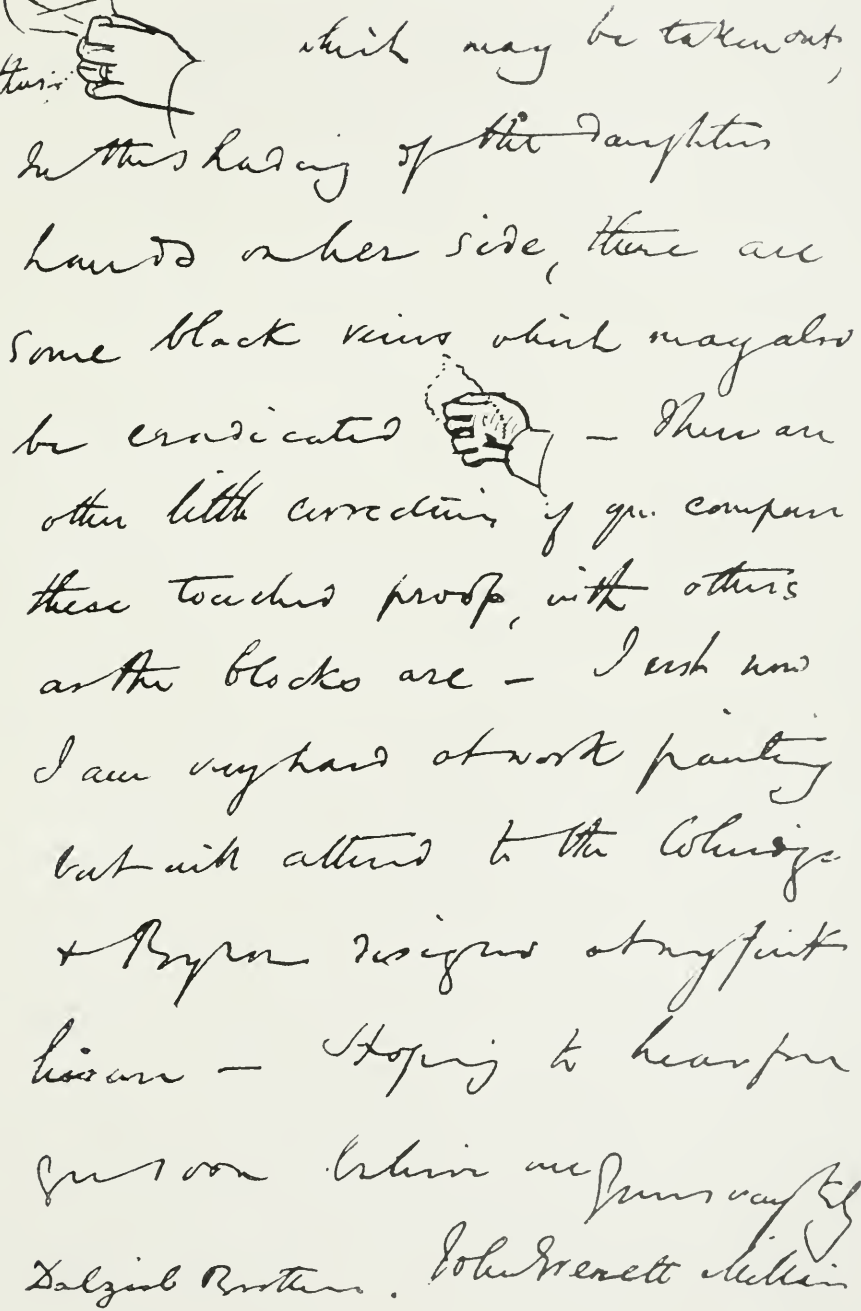 which may be taken out,
thus
In the shading of the daughters
hands on her side, there are
some black veins which may also
be eradicated — There are
other little corrections if you compare
these touched proofs, with others
as the blocks are — Just now
I am very hard at work painting
but will attend to the Coleridge
& Byron designs at my first
leisure — Hoping to hear from
you soon believe me yours very truly
Dalziel Brothers. John Everett Millais